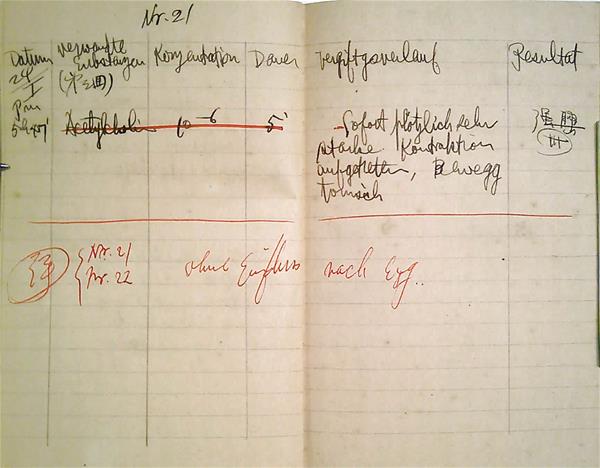 Nr. 21
Datum
verwandte Substanzen
Konzentration
Dauer
Vergiftgsverlauf
Resultat
24/I
(第三回)
Pm
Acetylcholin 10⁻⁶ 5'
Sofort plötzlich sehr
starke Kontraktion
aufgetreten, Bewegg
tonisch
Nr. 21
Nr. 22
ohne Einfluss nach Erg..